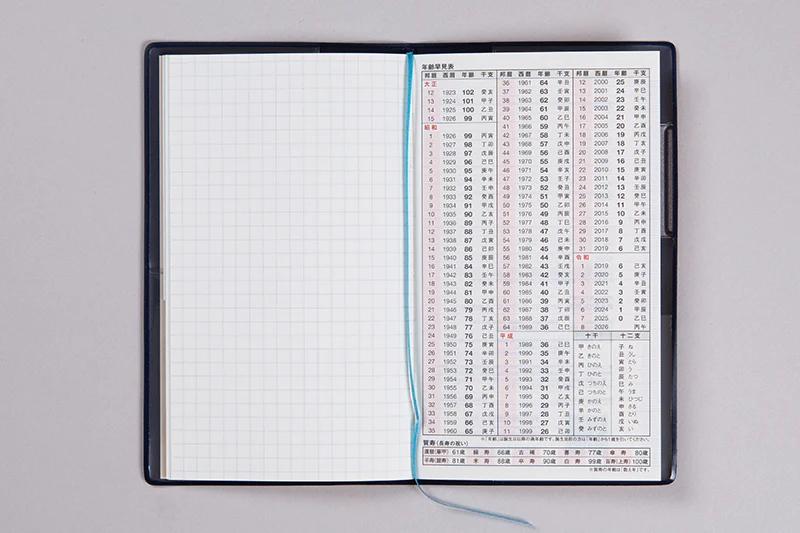 年齢早見表
邦暦 西暦 年齢 干支
大正
12 1923 102 癸亥
13 1924 101 甲子
14 1925 100 乙丑
15 1926 99 丙寅
昭和
1 1926 99 丙寅
2 1927 98 丁卯
3 1928 97 戊辰
4 1929 96 己巳
5 1930 95 庚午
6 1931 94 辛未
7 1932 93 壬申
8 1933 92 癸酉
9 1934 91 甲戌
10 1935 90 乙亥
11 1936 89 丙子
12 1937 88 丁丑
13 1938 87 戊寅
14 1939 86 己卯
15 1940 85 庚辰
16 1941 84 辛巳
17 1942 83 壬午
18 1943 82 癸未
19 1944 81 甲申
20 1945 80 乙酉
21 1946 79 丙戌
22 1947 78 丁亥
23 1948 77 戊子
24 1949 76 己丑
25 1950 75 庚寅
26 1951 74 辛卯
27 1952 73 壬辰
28 1953 72 癸巳
29 1954 71 甲午
30 1955 70 乙未
31 1956 69 丙申
32 1957 68 丁酉
33 1958 67 戊戌
34 1959 66 己亥
35 1960 65 庚子
邦暦 西暦 年齢 干支
36 1961 64 辛丑
37 1962 63 壬寅
38 1963 62 癸卯
39 1964 61 甲辰
40 1965 60 乙巳
41 1966 59 丙午
42 1967 58 丁未
43 1968 57 戊申
44 1969 56 己酉
45 1970 55 庚戌
46 1971 54 辛亥
47 1972 53 壬子
48 1973 52 癸丑
49 1974 51 甲寅
50 1975 50 乙卯
51 1976 49 丙辰
52 1977 48 丁巳
53 1978 47 戊午
54 1979 46 己未
55 1980 45 庚申
56 1981 44 辛酉
57 1982 43 壬戌
58 1983 42 癸亥
59 1984 41 甲子
60 1985 40 乙丑
61 1986 39 丙寅
62 1987 38 丁卯
63 1988 37 戊辰
64 1989 36 己巳
平成
1 1989 36 己巳
2 1990 35 庚午
3 1991 34 辛未
4 1992 33 壬申
5 1993 32 癸酉
6 1994 31 甲戌
7 1995 30 乙亥
8 1996 29 丙子
9 1997 28 丁丑
10 1998 27 戊寅
11 1999 26 己卯
邦暦 西暦 年齢 干支
12 2000 25 庚辰
13 2001 24 辛巳
14 2002 23 壬午
15 2003 22 癸未
16 2004 21 甲申
17 2005 20 乙酉
18 2006 19 丙戌
19 2007 18 丁亥
20 2008 17 戊子
21 2009 16 己丑
22 2010 15 庚寅
23 2011 14 辛卯
24 2012 13 壬辰
25 2013 12 癸巳
26 2014 11 甲午
27 2015 10 乙未
28 2016 9 丙申
29 2017 8 丁酉
30 2018 7 戊戌
31 2019 6 己亥
令和
1 2019 6 己亥
2 2020 5 庚子
3 2021 4 辛丑
4 2022 3 壬寅
5 2023 2 癸卯
6 2024 1 甲辰
7 2025 0 乙巳
8 2026 丙午
十干
甲 きのえ
乙 きのと
丙 ひのえ
丁 ひのと
戊 つちのえ
己 つちのと
庚 かのえ
辛 かのと
壬 みずのえ
癸 みずのと
十二支
子 ね
丑 うし
寅 とら
卯 う
辰 たつ
巳 み
午 うま
未 ひつじ
申 さる
酉 とり
戌 いぬ
亥 い
※「年齢」は誕生日以降の満年齢です。誕生日前の方は「年齢」から1を引いてください。
賀寿(長寿の祝い)
還暦(華甲) 61歳 緑寿 66歳 古稀 70歳 喜寿 77歳 傘寿 80歳
半寿(盤寿) 81歳 米寿 88歳 卒寿 90歳 白寿 99歳 百寿(上寿) 100歳
※賀寿の年齢は「数え年」です。